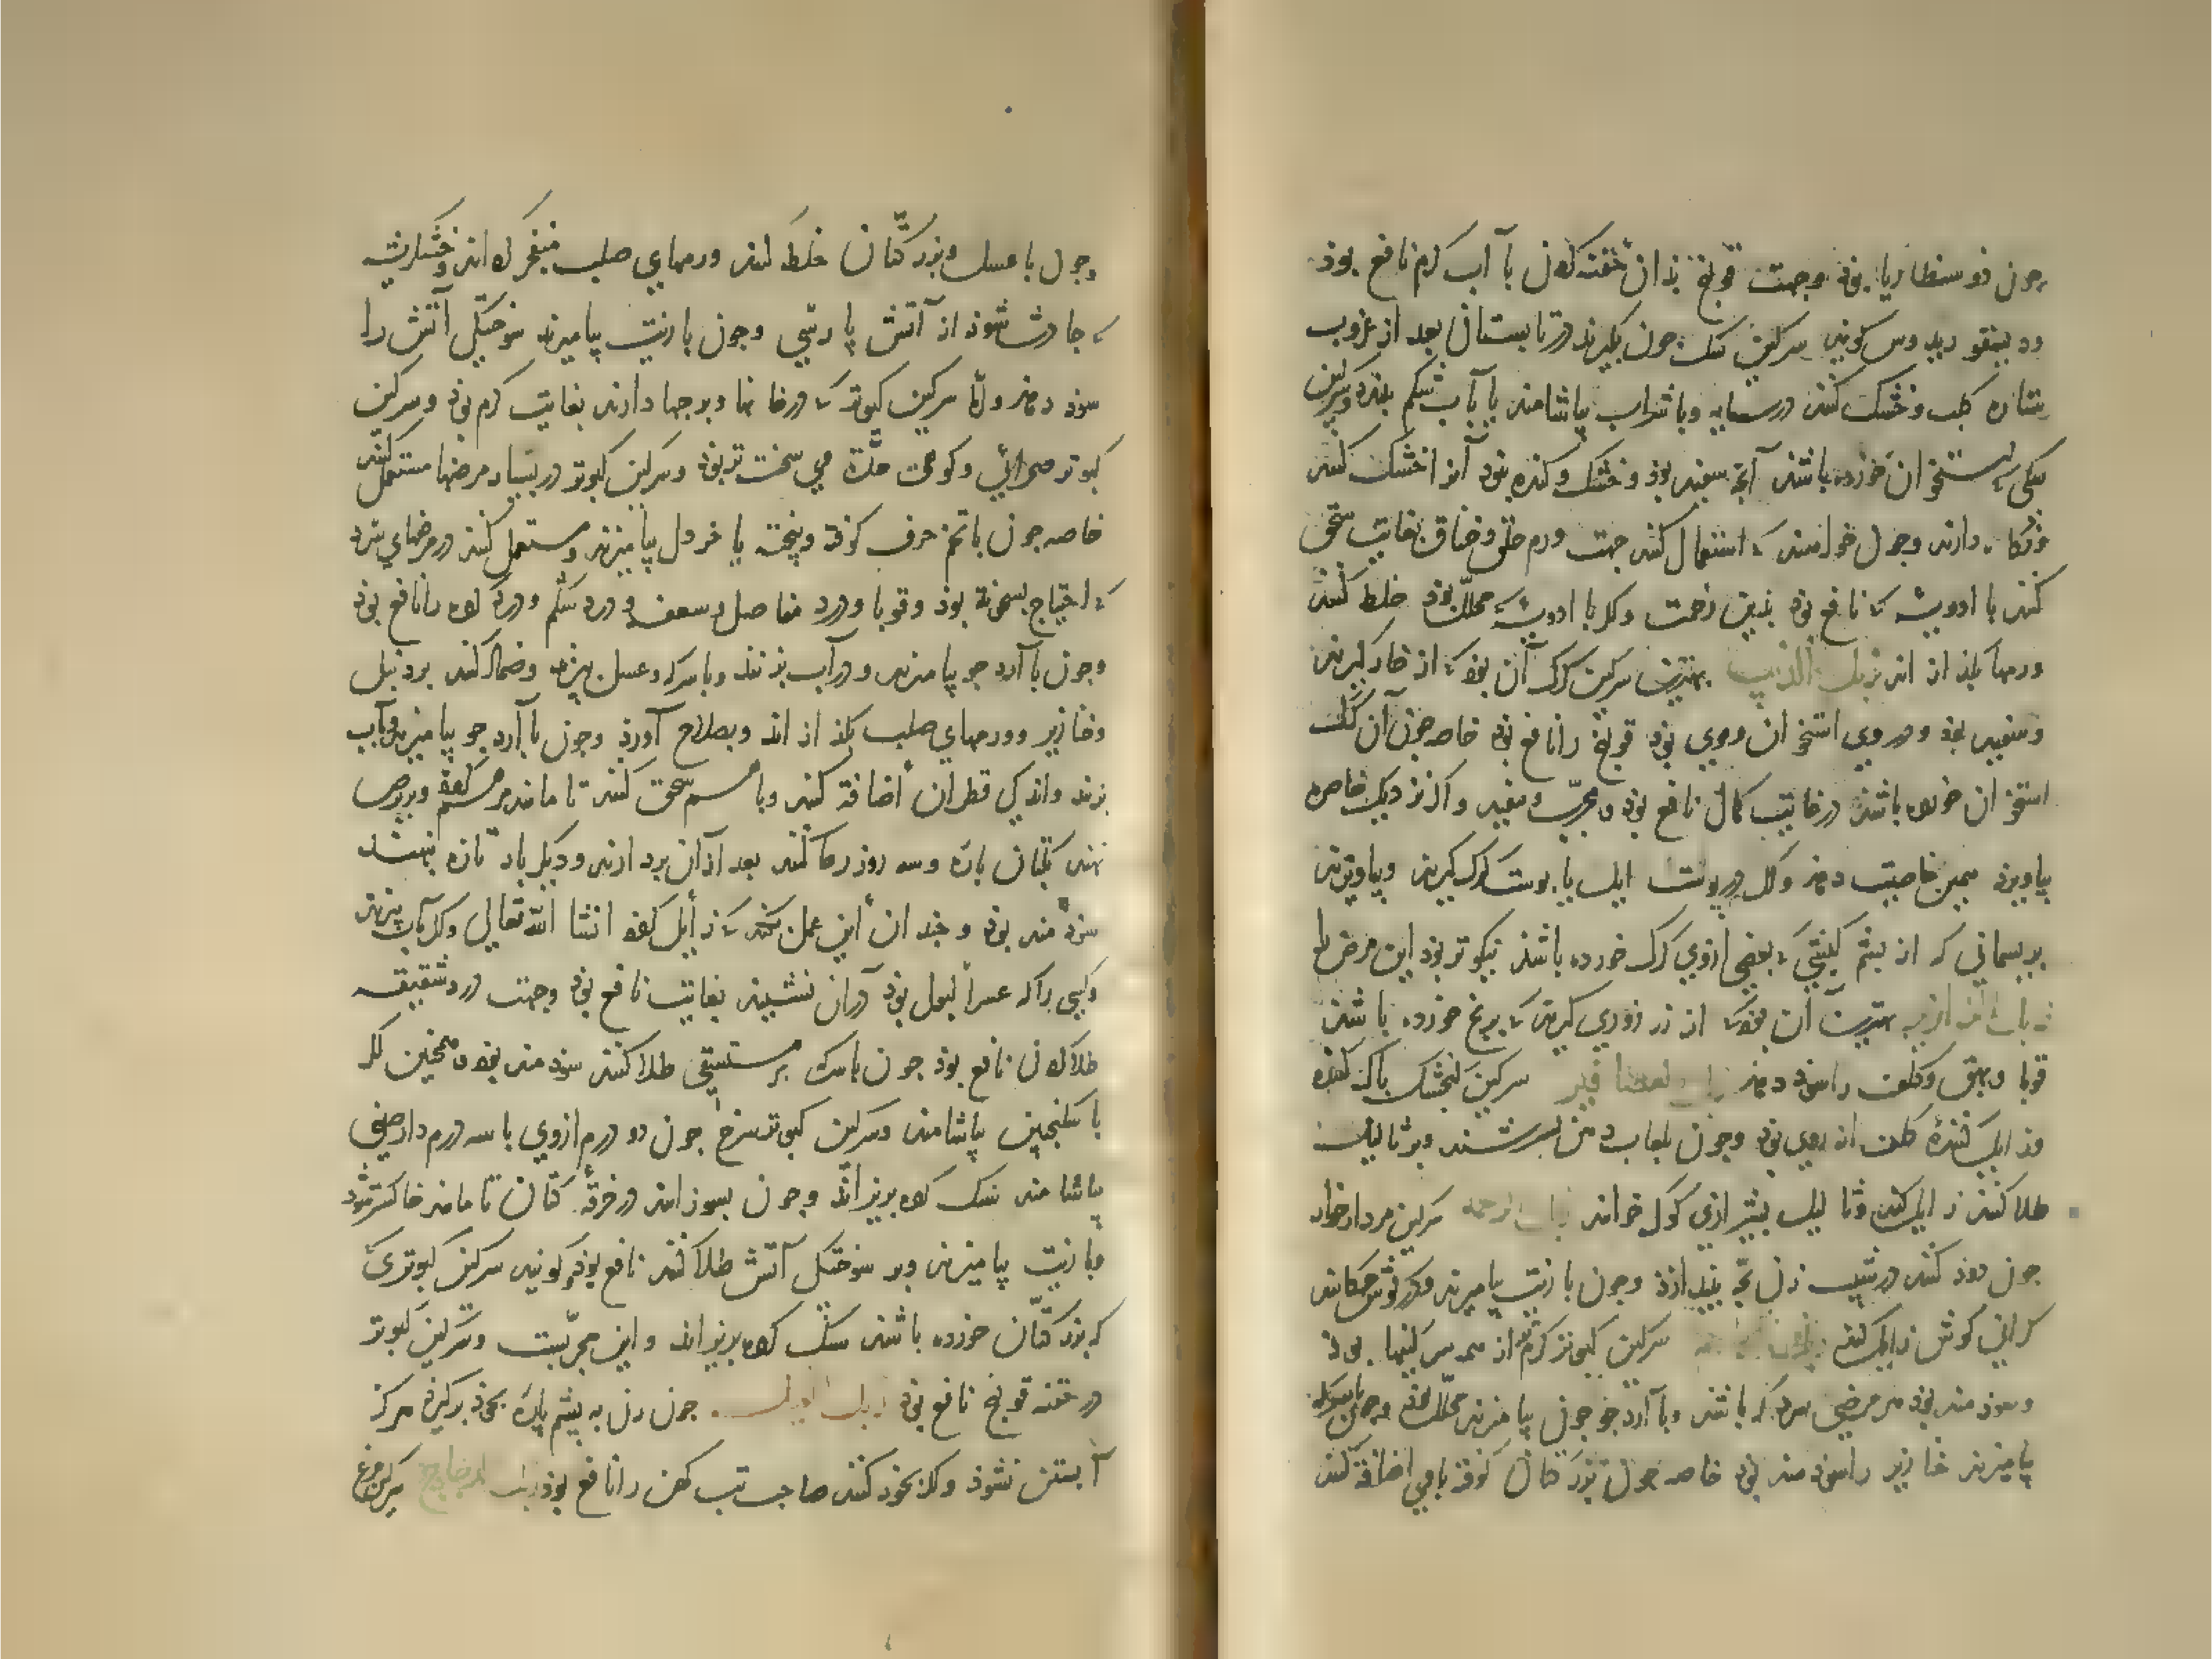 چون ذوسنطاریا بوذ وجهت قولنج بذان حقنه کردن با آب کرم نافع بوذ
سرکین سک چون بکیرند در تابستان بعد از غروب
ستاره کلب وخشک کنند در سایه وبا شراب بیاشامند یا باب شکم ببندد وسرکین
سکی که استخوان خورده باشد آنچه سفید بوذ وخشک وکنده نبوذ آنرا خشک کنند
دارند وچون خواهند که استعمال کنند جهت ورم حلق وخناق بغایت سحق
کنند با ادویه که نافع بوذ بذین زحمت وکر با ادویه که محلل بوذ خلط کنند
ورمها بکذازاند زبل الذیب بهترین سرکین کرک آن بوذ که از خار کیرند
وسفید بوذ ودر وی استخوان وموی بوذ قولنج را نافع بوذ خاصه چون آن کرک
استخوان خورده باشد در غایت کمال نافع بوذ ومجربست ومفید واکر نزدیک خاصره
بیاویزند همین خاصیت دهد وکر در پوست ایل یا پوست کرک کیرند وبیاویزند
بریسمانی که از پشم کبشی که بعضی ازوی کرک خورده باشد نیکوتر بوذ این مرض را
بهترین آن بوذ که از زرزوری کیرند که برنج خورده باشد
قوبا وبهق وکلف را سوذ دهد زبل العصافیر سرکین کنجشک پاک کننده
وزایل کننده کلف از روی بوذ وچون بلعاب دهن بسرشند وبر ثالیل
طلا کنند زایل کند وثالیل بشیرازی کوک خوانند زبل الرخمه سرکین مردار خوار
چون دود کنند در شیب زن بچه بیندازد وچون با زیت بیامیزند ودر کوش چکانند
کرانی کوش زایل کند سرکین کبوتر کرم تر از همه سرکینها بوذ
وسوذمند بوذ هر مرضی سرد که باشد وبا آرد جو چون بیامیزند محلل بوذ وچون با سرکه
بیامیزند خنازیر را سوذمند بوذ خاصه چون بزر کتان کوفته با وی اضافه کنند
وچون با عسل وبزر کتان خلط کنند ورمهای صلب منفجر کرداند وخشکریشه
که حادث شوذ از آتش پارسی وچون با زیت بیامیزند سوختکی آتش را
سوذ دهد واما سرکین کبوتر که در خانها وبرجها دارند بغایت کرم بوذ وسرکین
کبوتر صحرائی وکوهی حدة وی سخت تر بوذ وسرکین کبوتر در بسیار مرضها مستعمل کنند
خاصه چون با تخم حرف کوفته وپخته یا خردل بیامیزند ومستعمل کنند در مرضهای سرد
که احتیاج بسخونة بوذ وقوبا ودرد مفاصل وسعفه ودرد شکم ودرد کرده را نافع بوذ
وچون با آرد جو بیامیزند ودر آب بزنند وبا سرکه وعسل بپزند وضماد کنند بر دنبل
وخنازیر وورمهای صلب بکذازاند وبصلاح آورد وچون با آرد جو بیامیزند وبآب
بزنند واندکی قطران اضافه کنند وبا هم سحق کنند تا مانند مرهم شود وبر برص
نهند بکتان پاره وسه روز رها کنند بعد از آن بردارند ودیکر بار تازه بنهند
سوذمند بوذ وچندان این عمل بکنند که زایل کردد انشا الله تعالی وکر بآب بپزند
وکسی را که عسر البول بوذ در آن نشیند بغایت نافع بوذ وجهت درد شقیقه
طلا کردن نافع بوذ چون با سرکه بر مستسقی طلا کنند سوذمند بوذ وهمچنین اکر
با سکنجبین بیاشامند وسرکین کبوتر سرخ چون دو درم ازوی با سه درم دارصینی
بیاشامند سنک کرده بریزاند وچون بسوزانند در خرقه کتان تا مانند خاکستر شود
وبا زیت بیامیزند وبر سوختکی آتش طلا کنند نافع بوذ وکویند سرکین کبوتری
که بزر کتان خورده باشد سنک کرده بریزاند واین مجربست وسرکین کبوتر
در حقنه قولنج نافع بوذ زبل الفیل چون زن به پشم پاره بخوذ برکیرد هرکز
آبستن نشوذ وکر بخور کنند صاحب تب کهن را نافع بوذ زبل الدجاج سرکین مرغ